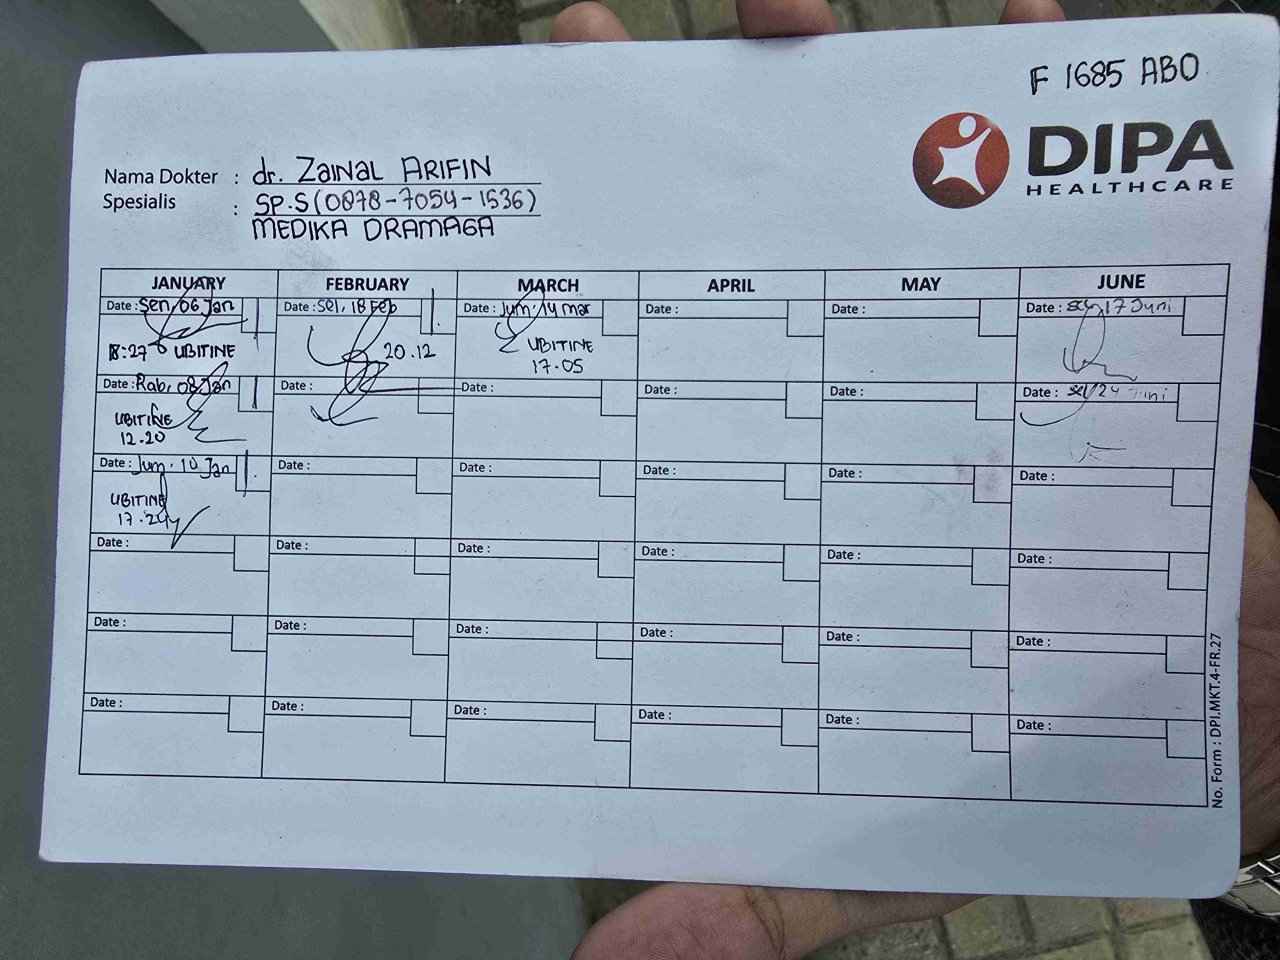 F 1685 ABO
DIPA
HEALTHCARE
Nama Dokter : dr. Zainal ARIFIN
Spesialis : SP.S (0878-7054-1536)
MEDIKA DRAMAGA
JANUARY FEBRUARY MARCH APRIL MAY JUNE
Date : Sen, 06 Jan Date : Sel, 18 Feb Date : Jum, 14 mar Date : Date : Date : Sel, 17 Juni
18:27 UBITINE 20.12 UBITINE
17.05
Date : Rab, 08 Jan Date : Date : Date : Date : Date : Sel, 24 Juni
UBITINE
12.20
Date : Jum, 10 Jan Date : Date : Date : Date : Date :
UBITINE
17.24
Date : Date : Date : Date : Date : Date :
Date : Date : Date : Date : Date : Date :
Date : Date : Date : Date : Date : Date :
No. Form : DPI.MKT.4-FR.27